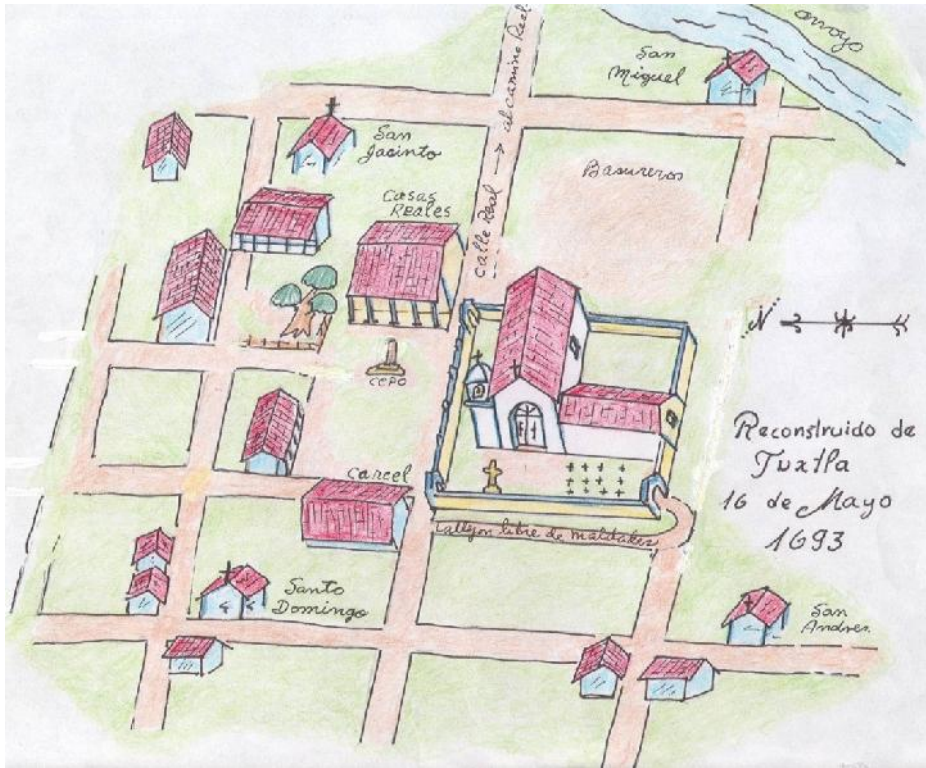 arroyo
San
Miguel
al camino Real
San
Jacinto
Basureros
Casas
Reales
Calle Real
N
CEPO
Reconstruido de
Tuxtla
16 de Mayo
1693
Carcel
Callejon libre de maldades
Santo
Domingo
San
Andres